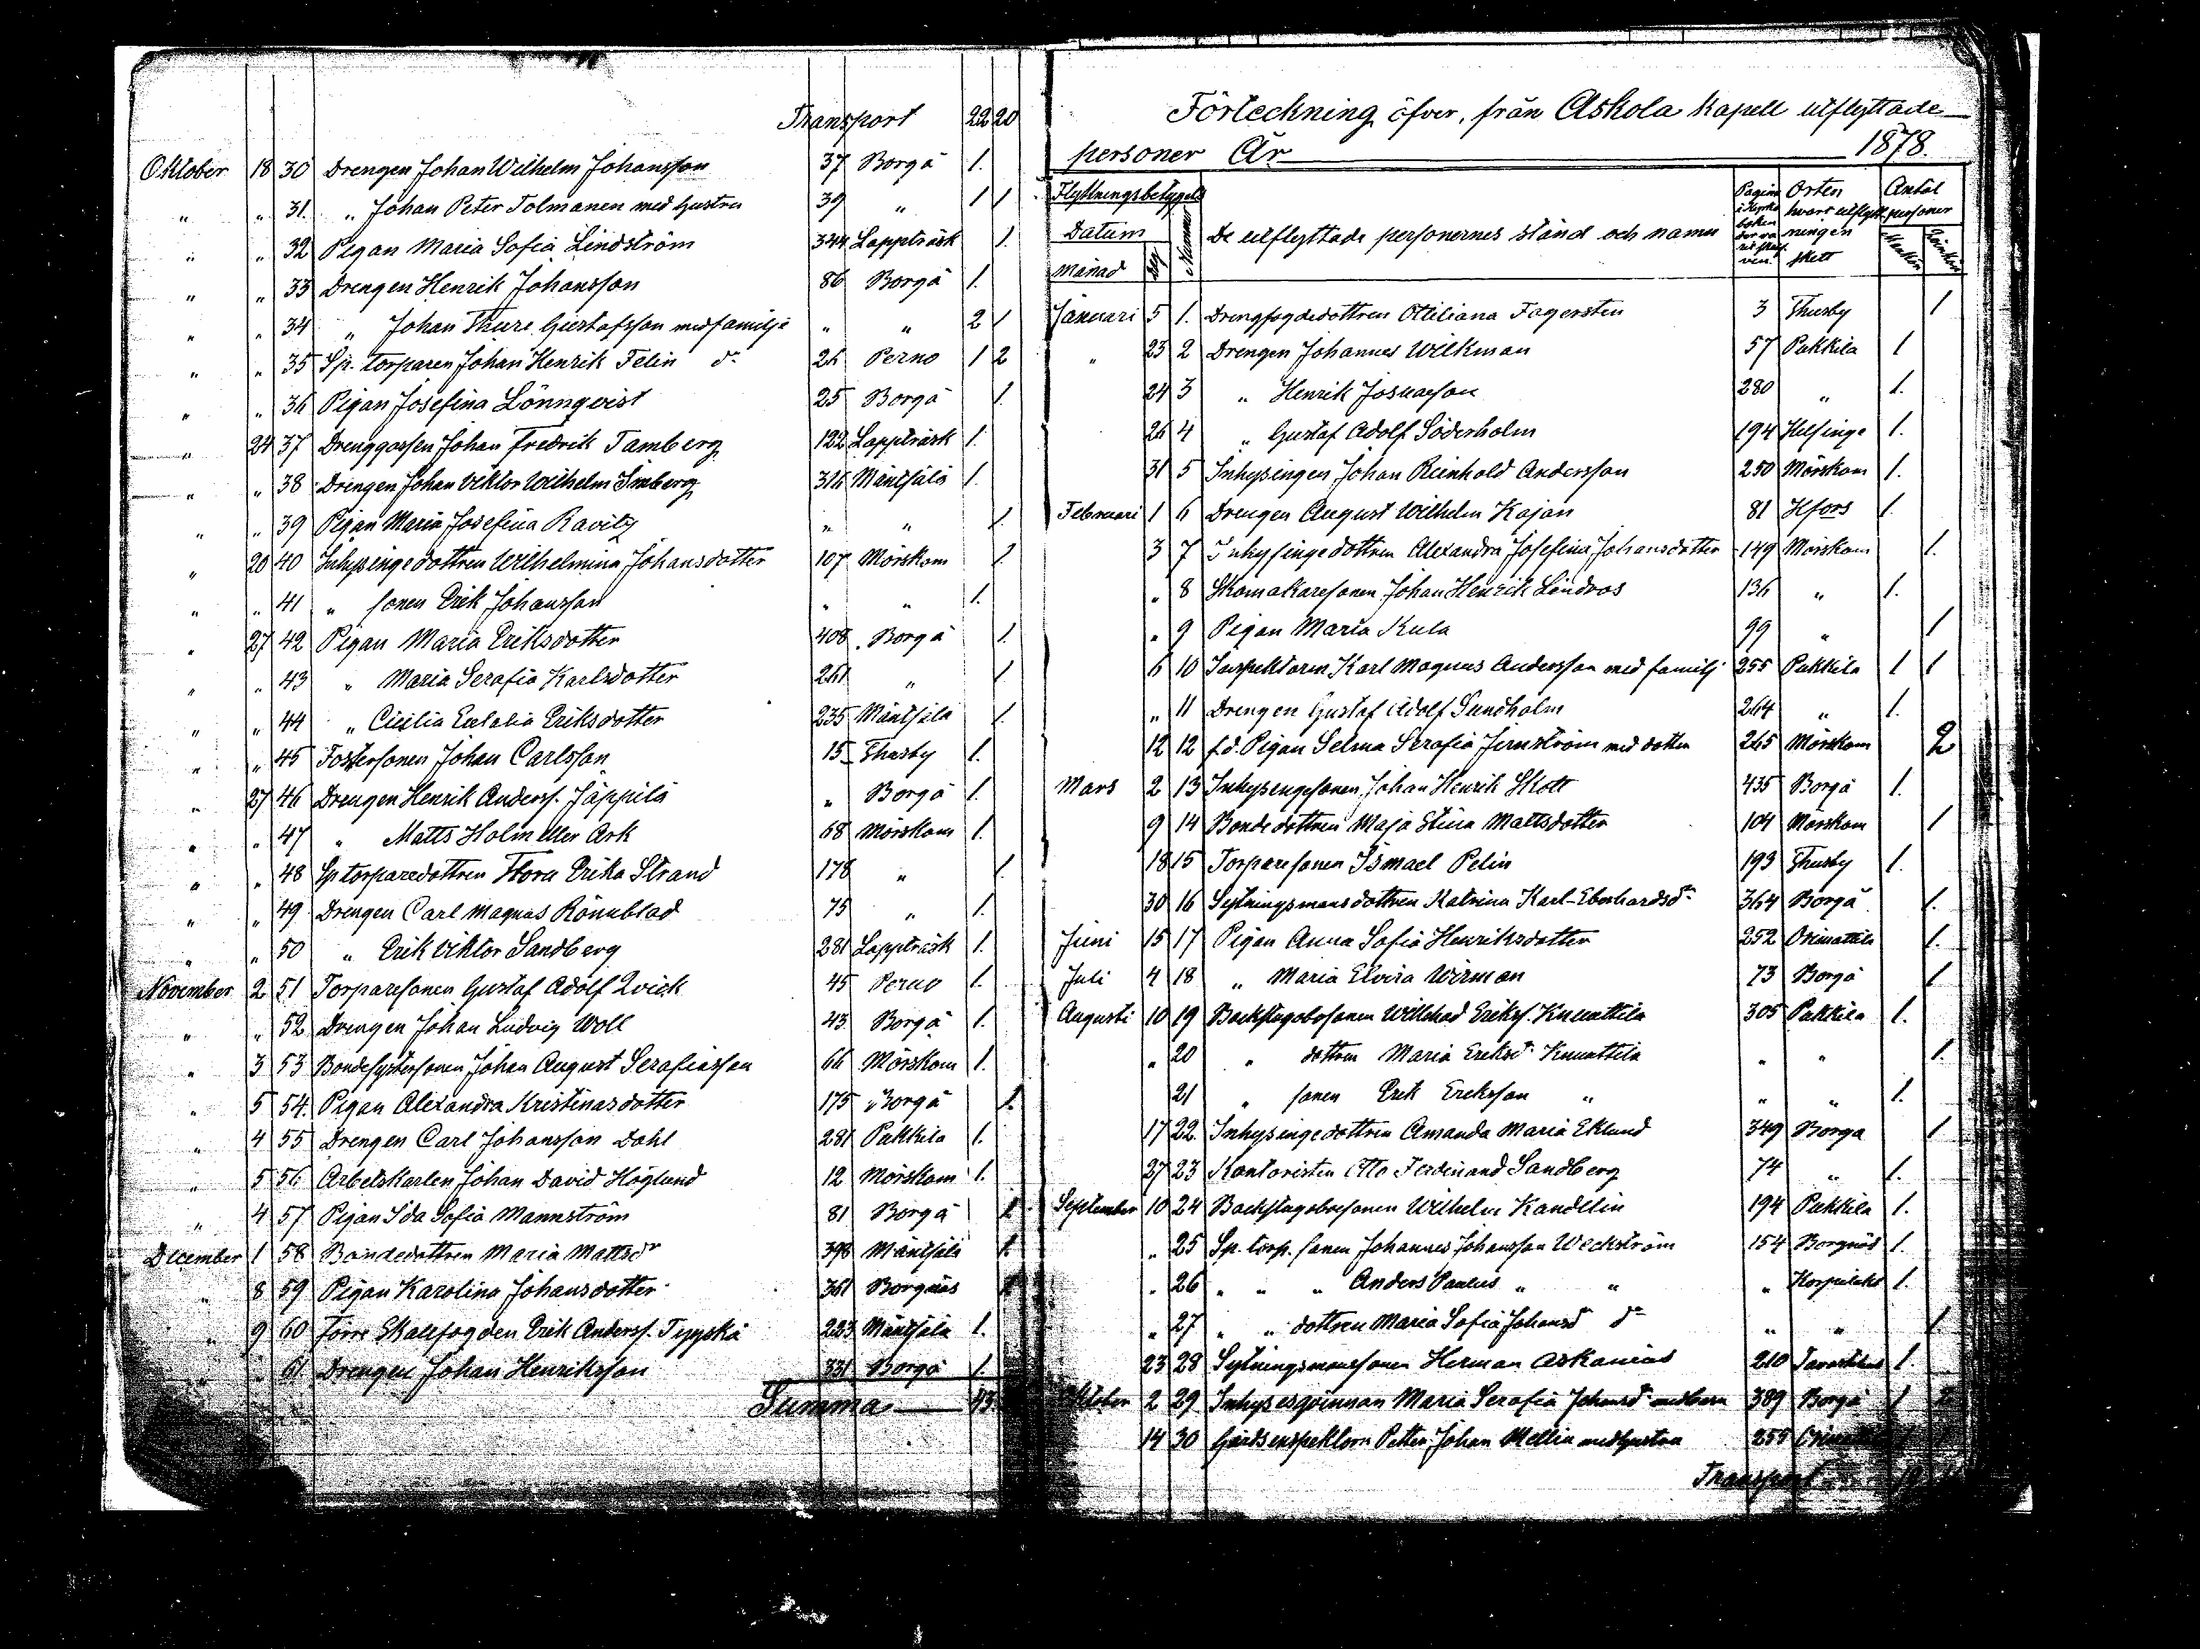 Transport 22 20
Oktober 18 30 Drengen Johan Wilhelm Johansson 37 Borgå 1.
" " 31. " Johan Peter Tolmanen med hustru 39 " 1 1
" " 32 Pigan Maria Sofia Lindström 344 Lappträsk 1.
" " 33 Drengen Henrik Johansson 86 Borgå 1.
" " 34 " Johan Thure Gustafsson med familje " " 2 1
" " 35 Sp. torparen Johan Henrik Felin do 26 Perno 1 2
" " 36 Pigan Josefina Lönnqvist 25 Borgå 1.
" 24 37 Drenggossen Johan Fredrik Tamberg 122 Lappträsk 1.
" " 38 Drengen Johan Viktor Wilhelm Imberg 316 Mäntsälä 1.
" " 39 Pigan Maria Josefina Ravitz " " 1.
" 20 40 Inhysingedottren Wilhelmina Johansdotter 107 Mörskom 1.
" " 41 " sonen Erik Johansson " " 1.
" 27 42 Pigan Maria Eriksdotter 408. Borgå 1.
" " 43 " Maria Serafia Karlsdotter 261 " 1
" " 44 " Cicilia Eulalia Eriksdotter 235 Mäntsälä 1.
" " 45 Fostersonen Johan Carlsson 15 Thusby 1.
" 27 46 Drengen Henrik Anderss. Jäppilä " Borgå 1.
" " 47 " Matts Holm eller Ark 68 Mörskom 1.
" " 48 Sptorparedottren Flora Erika Strand 178 " 1.
" " 49 Drengen Carl Magnus Rönnblad 75 " 1.
" " 50 " Erik Viktor Sandberg 281 Lappträsk 1.
November 2 51 Torparesonen Gustaf Adolf Qvick 45 Perno 1.
" " 52 Drengen Johan Ludvig Woll 43 Borgå 1.
" 3 53 Bondesystersonen Johan August Serafiasson 66 Mörskom 1.
" 5 54. Pigan Alexandra Kristinasdotter 175 " Borgå 1.
" 4 55 Drengen Carl Johansson Dahl 281 Pukkila 1.
" 5 56 Arbetskarlen Johan David Höglund 12 Mörskom 1.
" 4 57 Pigan Ida Sofia Mannström 81 Borgå 1.
December 1 58 Bondedottren Maria Mattsdr 398 Mäntsälä 1.
" 8 59 Pigan Karolina Johansdotter 361 Borgnäs 1
" 9 60 förre Skalfogden Erik Anderss. Tyyskä 223 Mäntsälä 1.
" " 61 Drengen Johan Henriksson 331 Borgå 1.
Summa 43
Förteckning öfver, från Askola kapell utflyttade
personer År 1878.
Flyttningsbetygets Pagina i kyrkoboken der va Orten hvart utflyttningen skett Antal personer
Datum De utflyttade personernes stånd och namn
Månad Nummer Mankön Qvinkön
Januari 5 1. Drengfogdedottren Ottiliana Fagersten 3 Thusby 1
" 23 2 Drengen Johannes Wilkman 57 Pukkila 1
24 3 " Henrik Josuasson 280 " 1.
26 4 " Gustaf Adolf Söderholm 194 Helsinge 1.
31 5 Inhysingen Johan Reinhold Andersson 250 Mörskom 1.
Februari 1 6 Drengen August Wilhelm Kajan 81 Hfors 1.
3 7 Inhysingedottren Alexandra Josefina Johansdotter 149 Mörskom 1.
" 8 Skomakaresonen Johan Henrik Lindroos 136 " 1.
" 9 Pigan Maria Kula 99 " 1
6 10 Inspektoren Karl Magnus Andersson med familj 255 Pukkila 1 1
" 11 Drengen Gustaf Adolf Sundholm 264 " 1.
12 12 f.d. Pigan Selma Serafia Jernström med dotter 265 Mörskom 2
Mars 2 13 Inhysingesonen Johan Henrik Skott 435 Borgå 1.
9 14 Bondedottren Maja Stina Mattsdotter 104 Mörskom 1
18 15 Torparesonen Ismael Pelin 193 Thusby 1.
30 16 Sytningsmansdottren Katrina Karl-Eberhardsdr 364 Borgå 1.
Juni 15 17 Pigan Anna Sofia Henriksdotter 252 Orimattila 1.
Juli 4 18 " Maria Elvira Wirman 73 Borgå 1
Augusti 10 19 Backstugobosonen Willehad Erikss. Knuuttila 305 Pukkila 1.
" 20 " dottren Maria Eriksdr Knuuttila " " 1.
21 " sonen Erik Eriksson " " " 1.
17 22. Inhysingedottren Amanda Maria Eklund 349 Borgå 1
27 23 Kontoristen Otto Ferdinand Sandberg 74 " 1.
September 10 24 Backstugobosonen Wilhelm Kandelin 194 Pukkila 1.
" 25 Sp. torp. sonen Johannes Johansson Weckström 154 Borgnäs 1.
" 26 " " " Anders Paulus " " " 1.
" 27 " " dottren Maria Sofia Johansdr do " " 1.
23 28 Sytningsmanssonen Herman Askanius 210 1.
Oktober 2 29 Inhysesqvinnan Maria Serafia Johansdr med barn 389 Borgå 1
14 30 Gårdsinspektorn Petter Johan Mellin med hustru 255
Transport